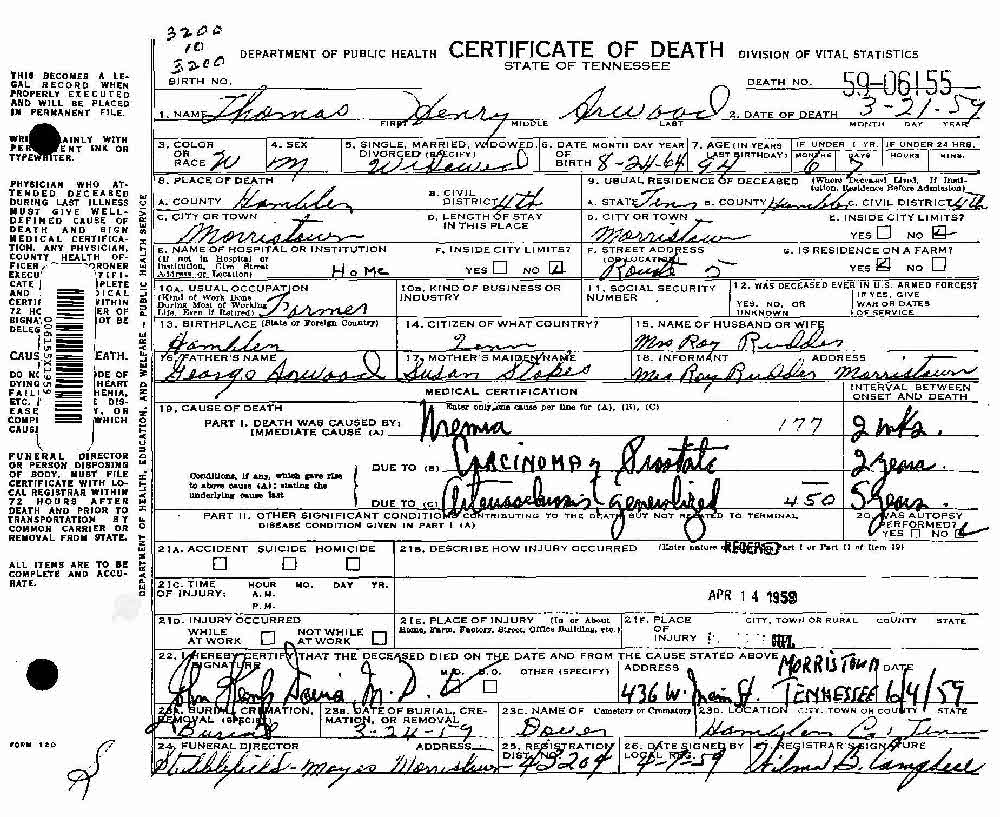 3200
10
3200
DEPARTMENT OF PUBLIC HEALTH CERTIFICATE OF DEATH DIVISION OF VITAL STATISTICS
STATE OF TENNESSEE
BIRTH NO. DEATH NO. 59-06155
1. NAME Thomas Henry Arwood 2. DATE OF DEATH 3-21-59
FIRST MIDDLE LAST MONTH DAY YEAR
3. COLOR OR RACE W 4. SEX M 5. SINGLE, MARRIED, WIDOWED, DIVORCED (SPECIFY) Widowed 6. DATE OF BIRTH MONTH DAY YEAR 8-24-64 7. AGE (IN YEARS LAST BIRTHDAY) 94 IF UNDER 1 YR. MONTHS 6 DAYS 7 IF UNDER 24 HRS. HOURS MINS.
8. PLACE OF DEATH 9. USUAL RESIDENCE OF DECEASED (Where Deceased Lived, If Institution, Residence Before Admission)
A. COUNTY Hamblen B. CIVIL DISTRICT 4th A. STATE Tenn B. COUNTY Hamblen C. CIVIL DISTRICT 4th
C. CITY OR TOWN Morristown D. LENGTH OF STAY IN THIS PLACE D. CITY OR TOWN Morristown E. INSIDE CITY LIMITS? YES NO
E. NAME OF HOSPITAL OR INSTITUTION (If not in Hospital or Institution, Give Street Address or Location) Home F. INSIDE CITY LIMITS? YES NO F. STREET ADDRESS (OR LOCATION) Route 5 G. IS RESIDENCE ON A FARM? YES NO
10A. USUAL OCCUPATION (Kind of Work Done During Most of Working Life, Even if Retired) Farmer 10B. KIND OF BUSINESS OR INDUSTRY 11. SOCIAL SECURITY NUMBER 12. WAS DECEASED EVER IN U.S. ARMED FORCES? YES, NO, OR UNKNOWN IF YES, GIVE WAR OR DATES OF SERVICE
13. BIRTHPLACE (State or Foreign Country) Hamblen 14. CITIZEN OF WHAT COUNTRY? Tenn 15. NAME OF HUSBAND OR WIFE Mrs Roy Rudder
16. FATHER'S NAME George Arwood 17. MOTHER'S MAIDEN NAME Susan Stokes 18. INFORMANT ADDRESS Mrs Roy Rudder Morristown
MEDICAL CERTIFICATION INTERVAL BETWEEN ONSET AND DEATH
19. CAUSE OF DEATH Enter only one cause per line for (A), (B), (C)
PART I. DEATH WAS CAUSED BY: IMMEDIATE CAUSE (A) Uremia 177 2 wks.
Conditions, if any, which gave rise to above cause (A); stating the underlying cause last
DUE TO (B) Carcinoma of Prostate 2 years.
DUE TO (C) Arteriosclerosis, generalized 450 5 years.
PART II. OTHER SIGNIFICANT CONDITIONS CONTRIBUTING TO THE DEATH BUT NOT RELATED TO TERMINAL DISEASE CONDITION GIVEN IN PART I (A) 20. WAS AUTOPSY PERFORMED? YES NO
21A. ACCIDENT SUICIDE HOMICIDE 21B. DESCRIBE HOW INJURY OCCURRED (Enter nature of Part I or Part II of Item 19)
21C. TIME OF INJURY: HOUR MO. DAY YR. A.M. P.M. APR 14 1959
21D. INJURY OCCURRED WHILE AT WORK NOT WHILE AT WORK 21E. PLACE OF INJURY (In or About Home, Farm, Factory, Street, Office Building, etc.) 21F. PLACE OF INJURY CITY, TOWN OR RURAL COUNTY STATE
22. I HEREBY CERTIFY THAT THE DECEASED DIED ON THE DATE AND FROM THE CAUSE STATED ABOVE
SIGNATURE M.D. M.D. D.O. OTHER (SPECIFY) ADDRESS 436 W. Main St. MORRISTOWN TENNESSEE DATE 6/4/59
23A. BURIAL, CREMATION, REMOVAL (SPECIFY) Burial 23B. DATE OF BURIAL, CREMATION, OR REMOVAL 3-24-59 23C. NAME OF Cemetery or Crematory Dover 23D. LOCATION CITY, TOWN OR COUNTY STATE Hamblen Co, Tenn
24. FUNERAL DIRECTOR ADDRESS Stubblefield-Mayes Morristown 25. REGISTRATION DIST. NO. 43204 26. DATE SIGNED BY LOCAL REG. 4-7-59 27. REGISTRAR'S SIGNATURE Wilma B. Campbell
THIS BECOMES A LE-
GAL RECORD WHEN
PROPERLY EXECUTED
AND WILL BE PLACED
IN PERMANENT FILE.
AINLY WITH
INK OR
TYPEWRITER.
PHYSICIAN WHO AT-
TENDED DECEASED
DURING LAST ILLNESS
MUST GIVE WELL-
DEFINED CAUSE OF
DEATH AND SIGN
MEDICAL CERTIFICA-
TION. ANY PHYSICIAN,
COUNTY HEALTH OF-
FUNERAL DIRECTOR
OR PERSON DISPOSING
OF BODY, MUST FILE
CERTIFICATE WITH LO-
CAL REGISTRAR WITHIN
72 HOURS AFTER
DEATH AND PRIOR TO
TRANSPORTATION BY
COMMON CARRIER OR
REMOVAL FROM STATE.
ALL ITEMS ARE TO BE
COMPLETE AND ACCU-
RATE.
FORM 120
DEPARTMENT OF HEALTH, EDUCATION, AND WELFARE - PUBLIC HEALTH SERVICE